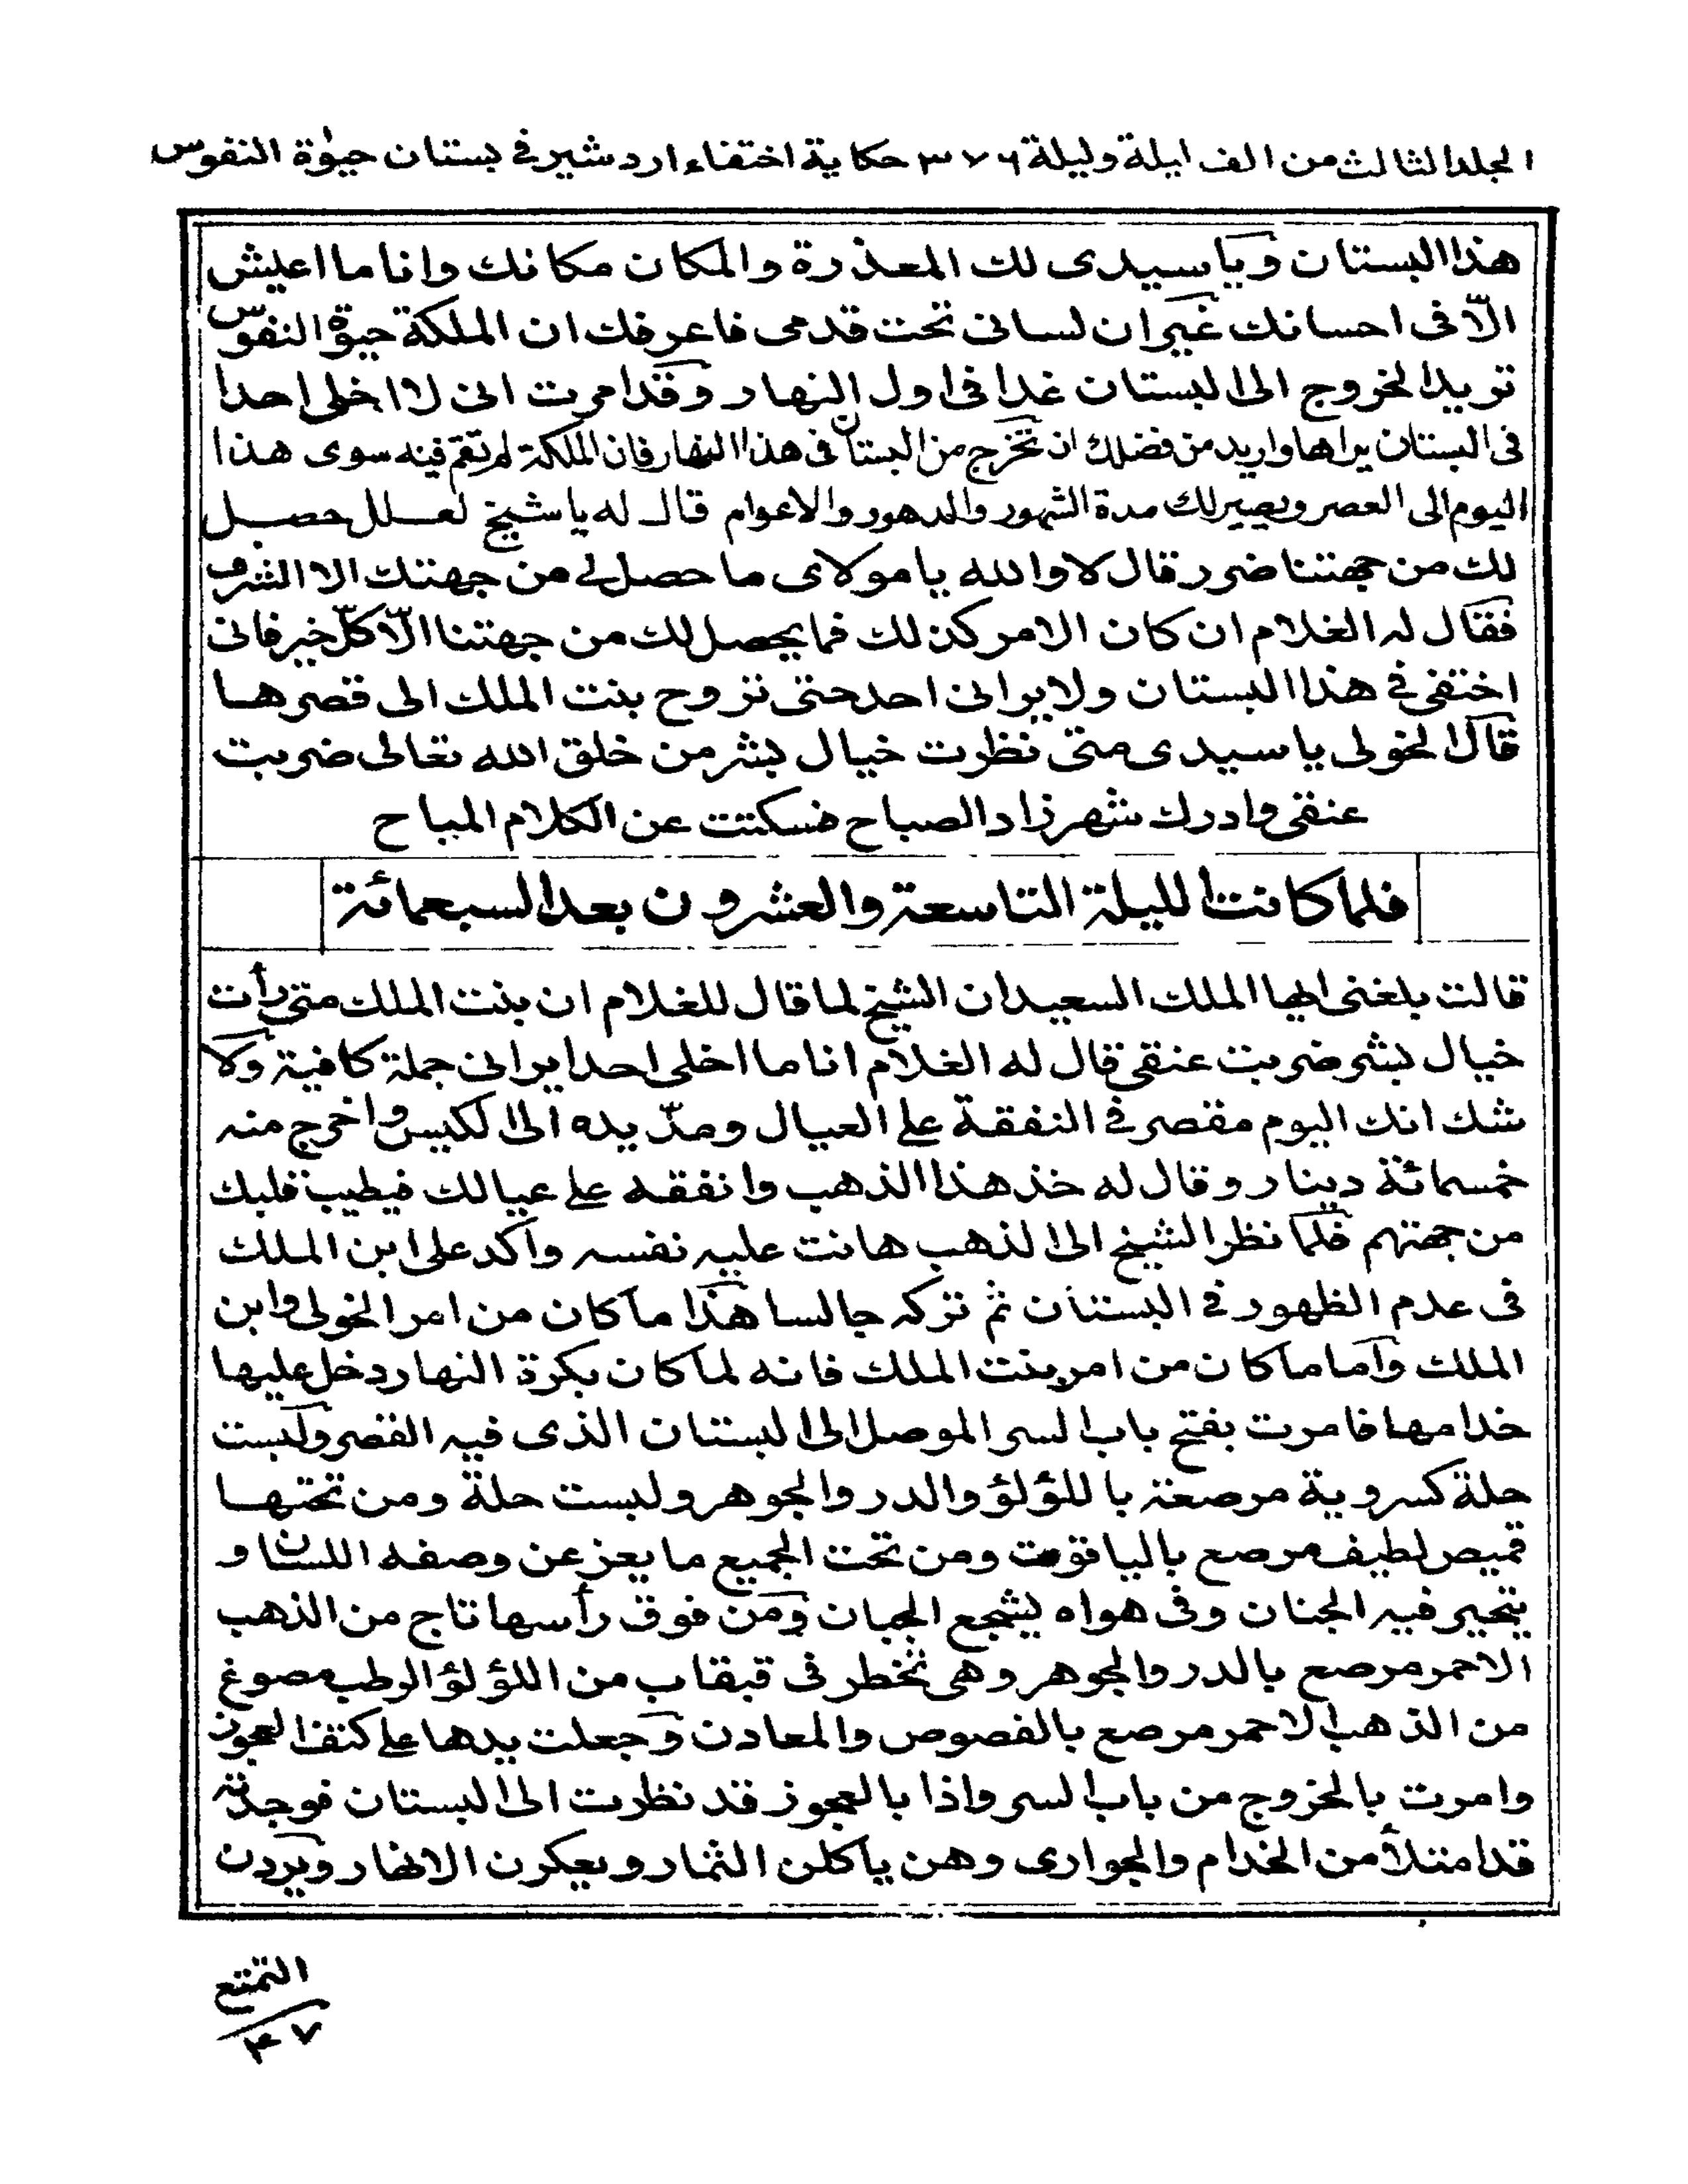 المجلد الثالث من الف ليلة وليلة ٣٧٦ حكاية اختفاء اردشير في بستان حيوٰة النفوس
هذا البستان ويا سيدى لك المعذرة والمكان مكانك وانا ما اعيش
الّا فى احسانك غير ان لسانى تحت قدمى فاعرفك ان الملكة حيوٰة النفوس
تريد الخروج الى البستان غدا فى اول النهار وقد امرت انى لا اخلى احدا
فى البستان يراها واريد من فضلك ان تخرج من البستان فى هذا النهار فان الملكة لم تقم فيه سوى هذا
اليوم الى العصر ويصير لك مدة الشهور والدهور والاعوام قال له يا شيخ لعلل حصل
لك من جهتنا ضرر قال لا والله يا مولاى ما حصل لى من جهتك الا الشرف
فقال له الغلام ان كان الامر كذلك فما يحصل لك من جهتنا الّا كلّ خير فانى
اختفى في هذا البستان ولا يرانى احد حتى تروح بنت الملك الى قصرها
قال الخولى يا سيدى متى نظرت خيال بشر من خلق الله تعالى ضربت
عنقى وادرك شهرزاد الصباح فسكتت عن الكلام المباح
فلما كانت الليلة التاسعة والعشرون بعد السبعمائة
قالت بلغنى ايها الملك السعيد ان الشيخ لما قال للغلام ان بنت الملك متى رأت
خيال بشر ضربت عنقى قال له الغلام انا ما اخلى احدا يرانى جملة كافية ولا
شك انك اليوم مقصر في النفقة على العيال ومدّ يده الى الكيس واخرج منه
خمسمائة دينار وقال له خذ هذا الذهب وانفقه على عيالك فيطيب قلبك
من جهتهم فلما نظر الشيخ الى الذهب هانت عليه نفسه واكد على ابن الملك
فى عدم الظهور في البستان ثم تركه جالسا هذا ما كان من امر الخولى وابن
الملك واما ما كان من امر بنت الملك فانه لما كان بكرة النهار دخل عليها
خدامها فامرت بفتح باب السر الموصل الى البستان الذى فيه القصر ولبست
حلة كسروية مرصعة باللؤلؤ والدر والجوهر ولبست حلة ومن تحتها
قميص لطيف مرصع بالياقوت ومن تحت الجميع ما يعز عن وصفه اللسان و
يتحير فيه الجنان وفى هواه يشجع الجبان ومن فوق رأسها تاج من الذهب
الاحمر مرصع بالدر والجوهر وهى تخطر فى قبقاب من اللؤلؤ الرطب مصوغ
من الذهب الاحمر مرصع بالفصوص والمعادن وجعلت يدها على كتف العجوز
وامرت بالخروج من باب السر واذا بالعجوز قد نظرت الى البستان فوجدته
قد امتلأ من الخدام والجوارى وهن يأكلن الثمار ويعكرن الانهار ويردن
التمتع
٤٧